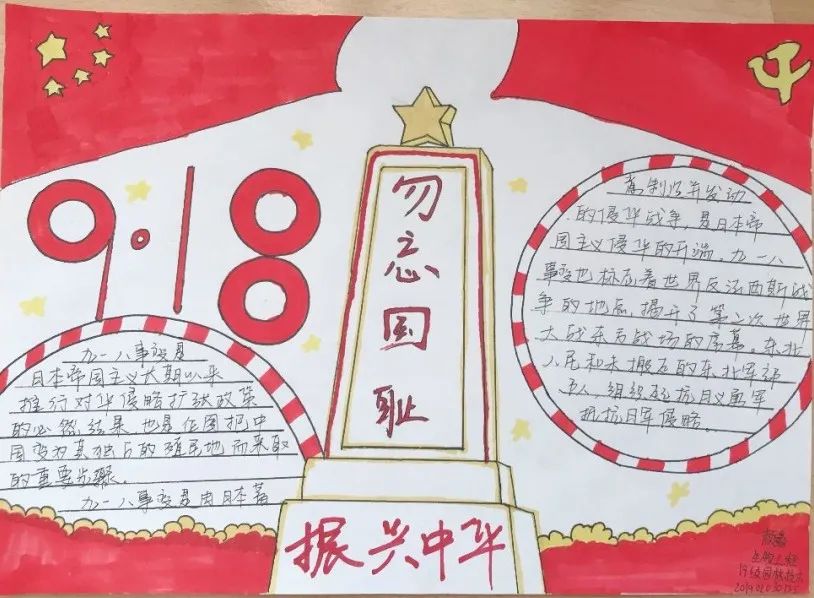 9·18
勿忘国耻
振兴中华
九一八事变是
日本帝国主义长期以来
推行对华侵略扩张政策
的必然结果,也是企图把中
国变为其独占的殖民地而采取
的重要步骤.
九一八事变是由日本蓄
意制造并发动
的侵华战争,是日本帝
国主义侵华的开端.九一八
事变也标志着世界反法西斯战
争的地点,揭开了第二次世界
大战东方战场的序幕.东北
人民和未撤走的东北军部
组织起抗日义勇军
抵抗日军侵略.
19级园林技术